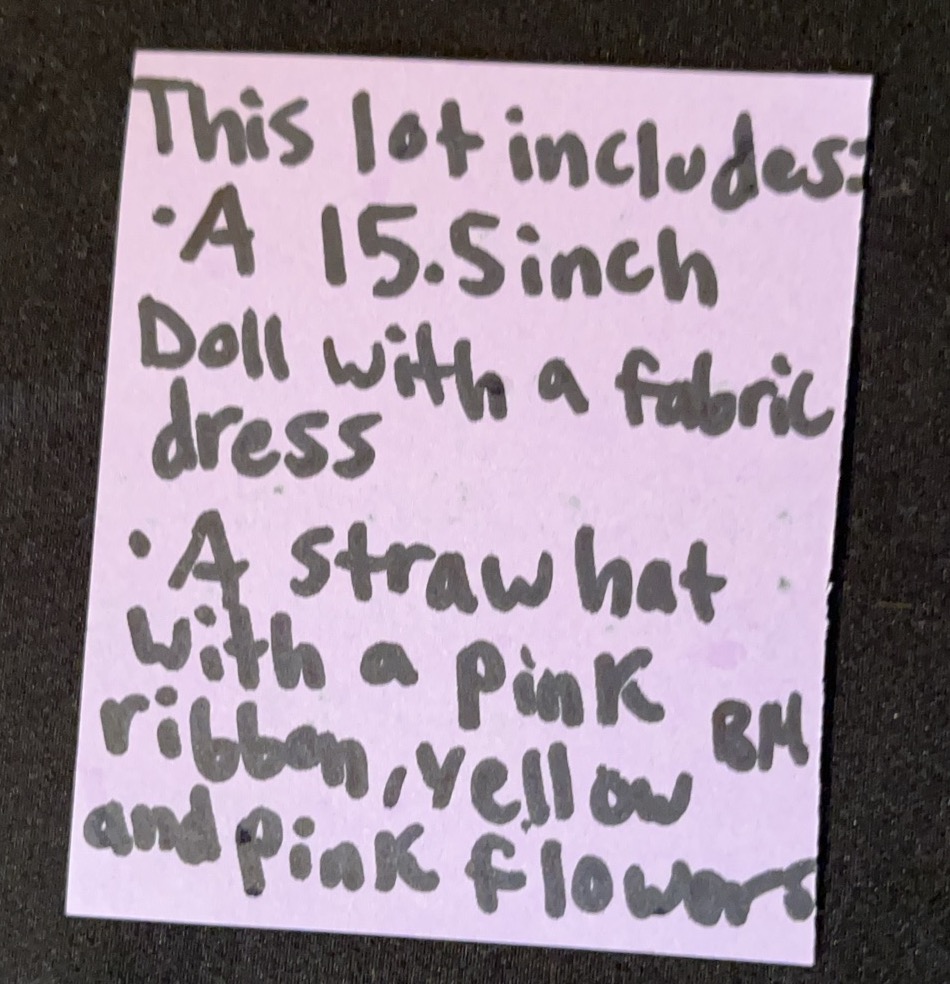 This lot includes:
• A 15.5 inch
Doll with a fabric
dress
• A straw hat
with a pink
ribbon, yellow BM
and pink flowers